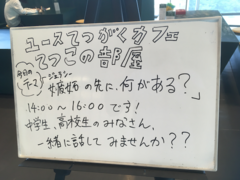 ユースてつがくカフェ
てつこの部屋
今日のテーマ
ジェラシー
「嫉妬の先に、何がある？」
14:00〜16:00です！
中学生、高校生のみなさん、
一緒に話してみませんか？？